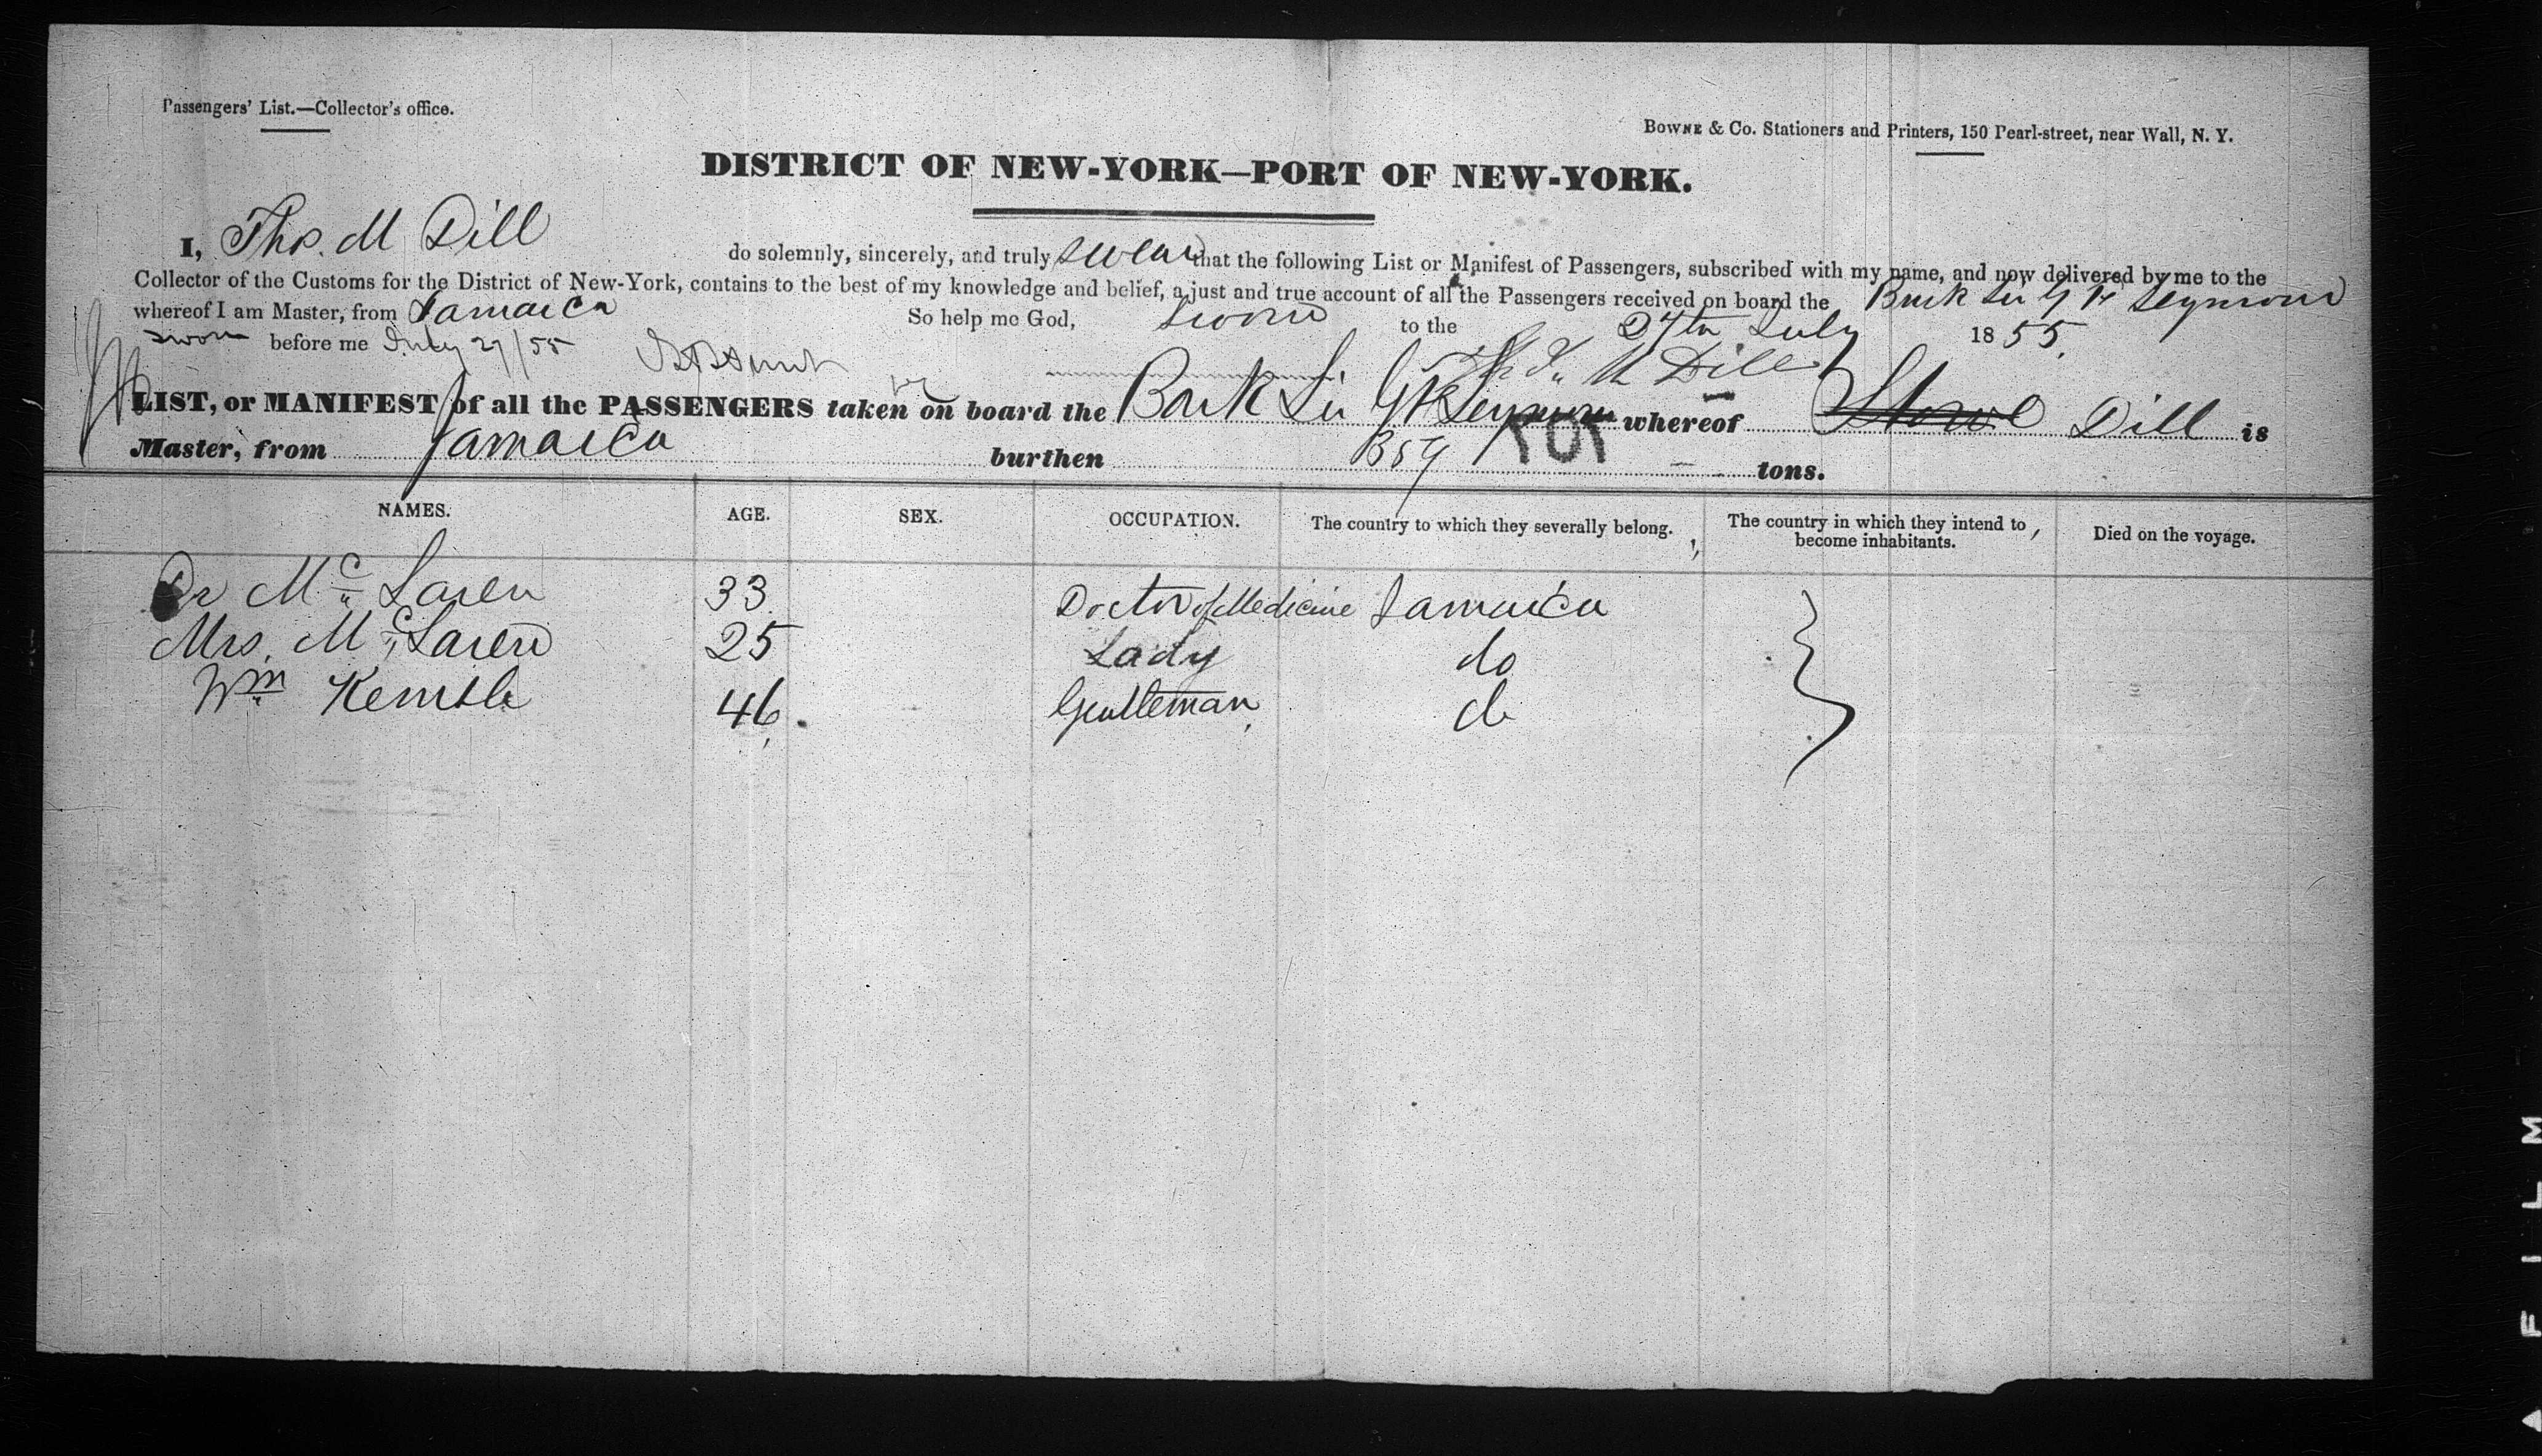 Passengers' List.—Collector's office.
Bowne & Co. Stationers and Printers, 150 Pearl-street, near Wall, N. Y.
DISTRICT OF NEW-YORK—PORT OF NEW-YORK.
I, Thos. M Dill do solemnly, sincerely, and truly swear that the following List or Manifest of Passengers, subscribed with my name, and now delivered by me to the
Collector of the Customs for the District of New-York, contains to the best of my knowledge and belief, a just and true account of all the Passengers received on board the Bark Sir G F Seymour
whereof I am Master, from Jamaica So help me God, Sworn to the 27th July 1855.
Sworn before me July 27/55
Thos. M Dill
LIST, or MANIFEST of all the PASSENGERS taken on board the Bark Sir G F Seymour whereof Stowe Dill is
Master, from Jamaica burthen 359 tons.
101
NAMES. AGE. SEX. OCCUPATION. The country to which they severally belong. The country in which they intend to become inhabitants. Died on the voyage.
Dr Mc Laren 33 Doctor of Medicine Jamaica
Mrs. Mc Laren 25 Lady do
Wm Kemble 46 Gentleman do
FILM